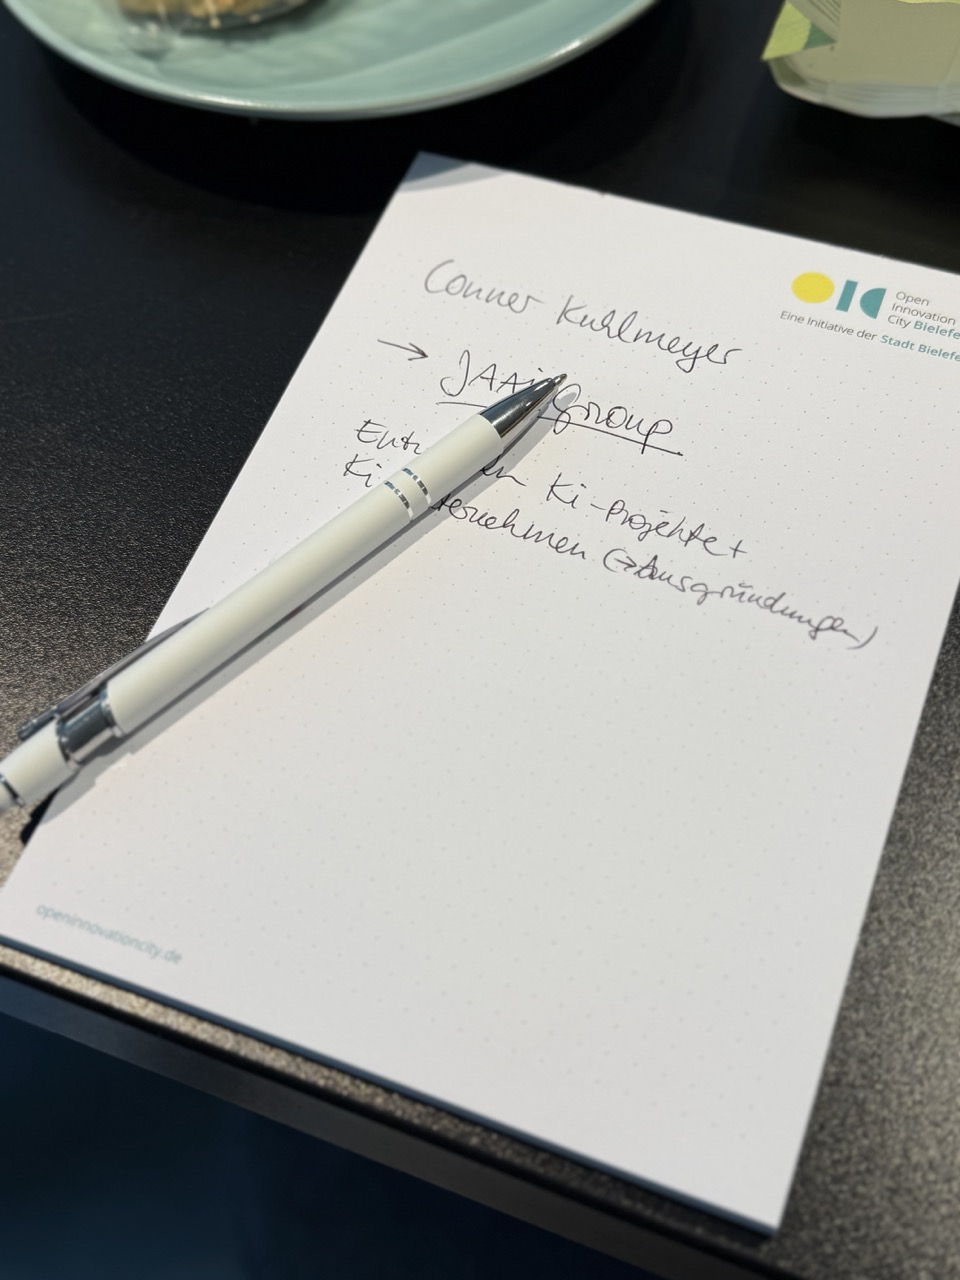 Open
Innovation
City Bielefe
Eine Initiative der Stadt Bielefe
Conner Kuhlmeyer
→ JAAI Group
Ki-Projekte +
(→Ausgründungen)
openinnovationcity.de